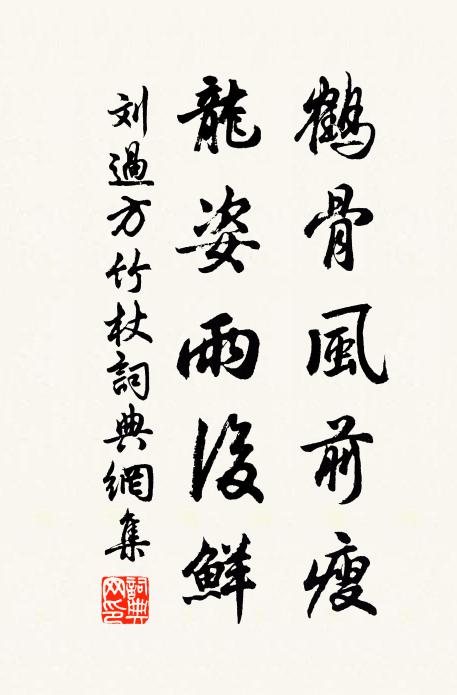 鶴骨風前瘦
龍姿雨後鮮
刘過方竹杖詞典網集
詞典网印